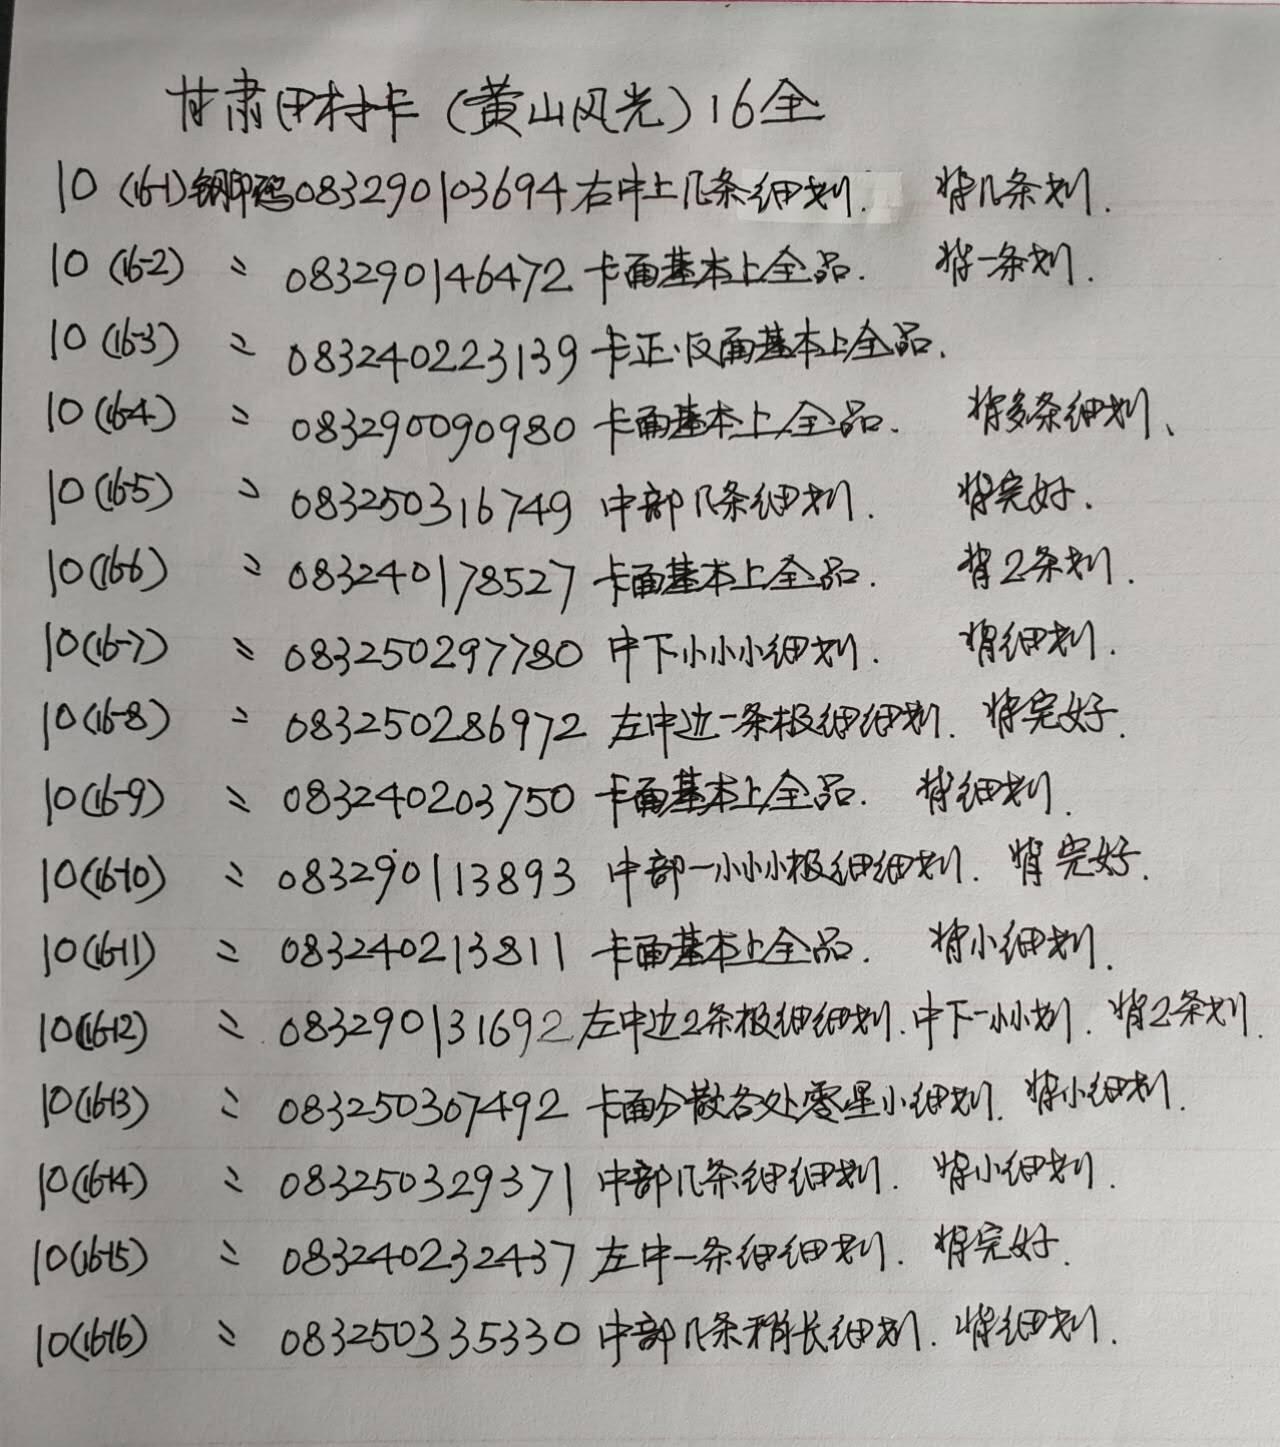 甘肃田村卡(黄山风光)16全
10 (16-1)钢印码083290103694右中上几条细划. 背几条划.
10 (16-2) 〃 083290146472卡面基本上全品. 背一条划.
10 (16-3) 〃 083240223139卡正.反面基本上全品.
10 (16-4) 〃 083290090980卡面基本上全品. 背多条细划、
10 (16-5) 〃 083250316749 中部几条细划. 背完好.
10 (16-6) 〃 083240178527 卡面基本上全品. 背2条划.
10 (16-7) 〃 083250297780 中下小小小细划. 背细划.
10 (16-8) 〃 083250286972 左中边一条极细细划. 背完好.
10 (16-9) 〃 083240203750 卡面基本上全品. 背细划.
10 (16-10) 〃 083290113893 中部一小小小极细细划. 背完好.
10 (16-11) 〃 083240213811 卡面基本上全品. 背小细划.
10 (16-12) 〃 083290131692左中边2条极细细划.中下一小小划. 背2条划.
10 (16-13) 〃 083250307492 卡面分散各处零星小细划. 背小细划.
10 (16-14) 〃 083250329371 中部几条细细划. 背小细划.
10 (16-15) 〃 083240232437 左中一条细细划. 背完好.
10 (16-16) 〃 083250335330 中部几条稍长细划. 背细划.